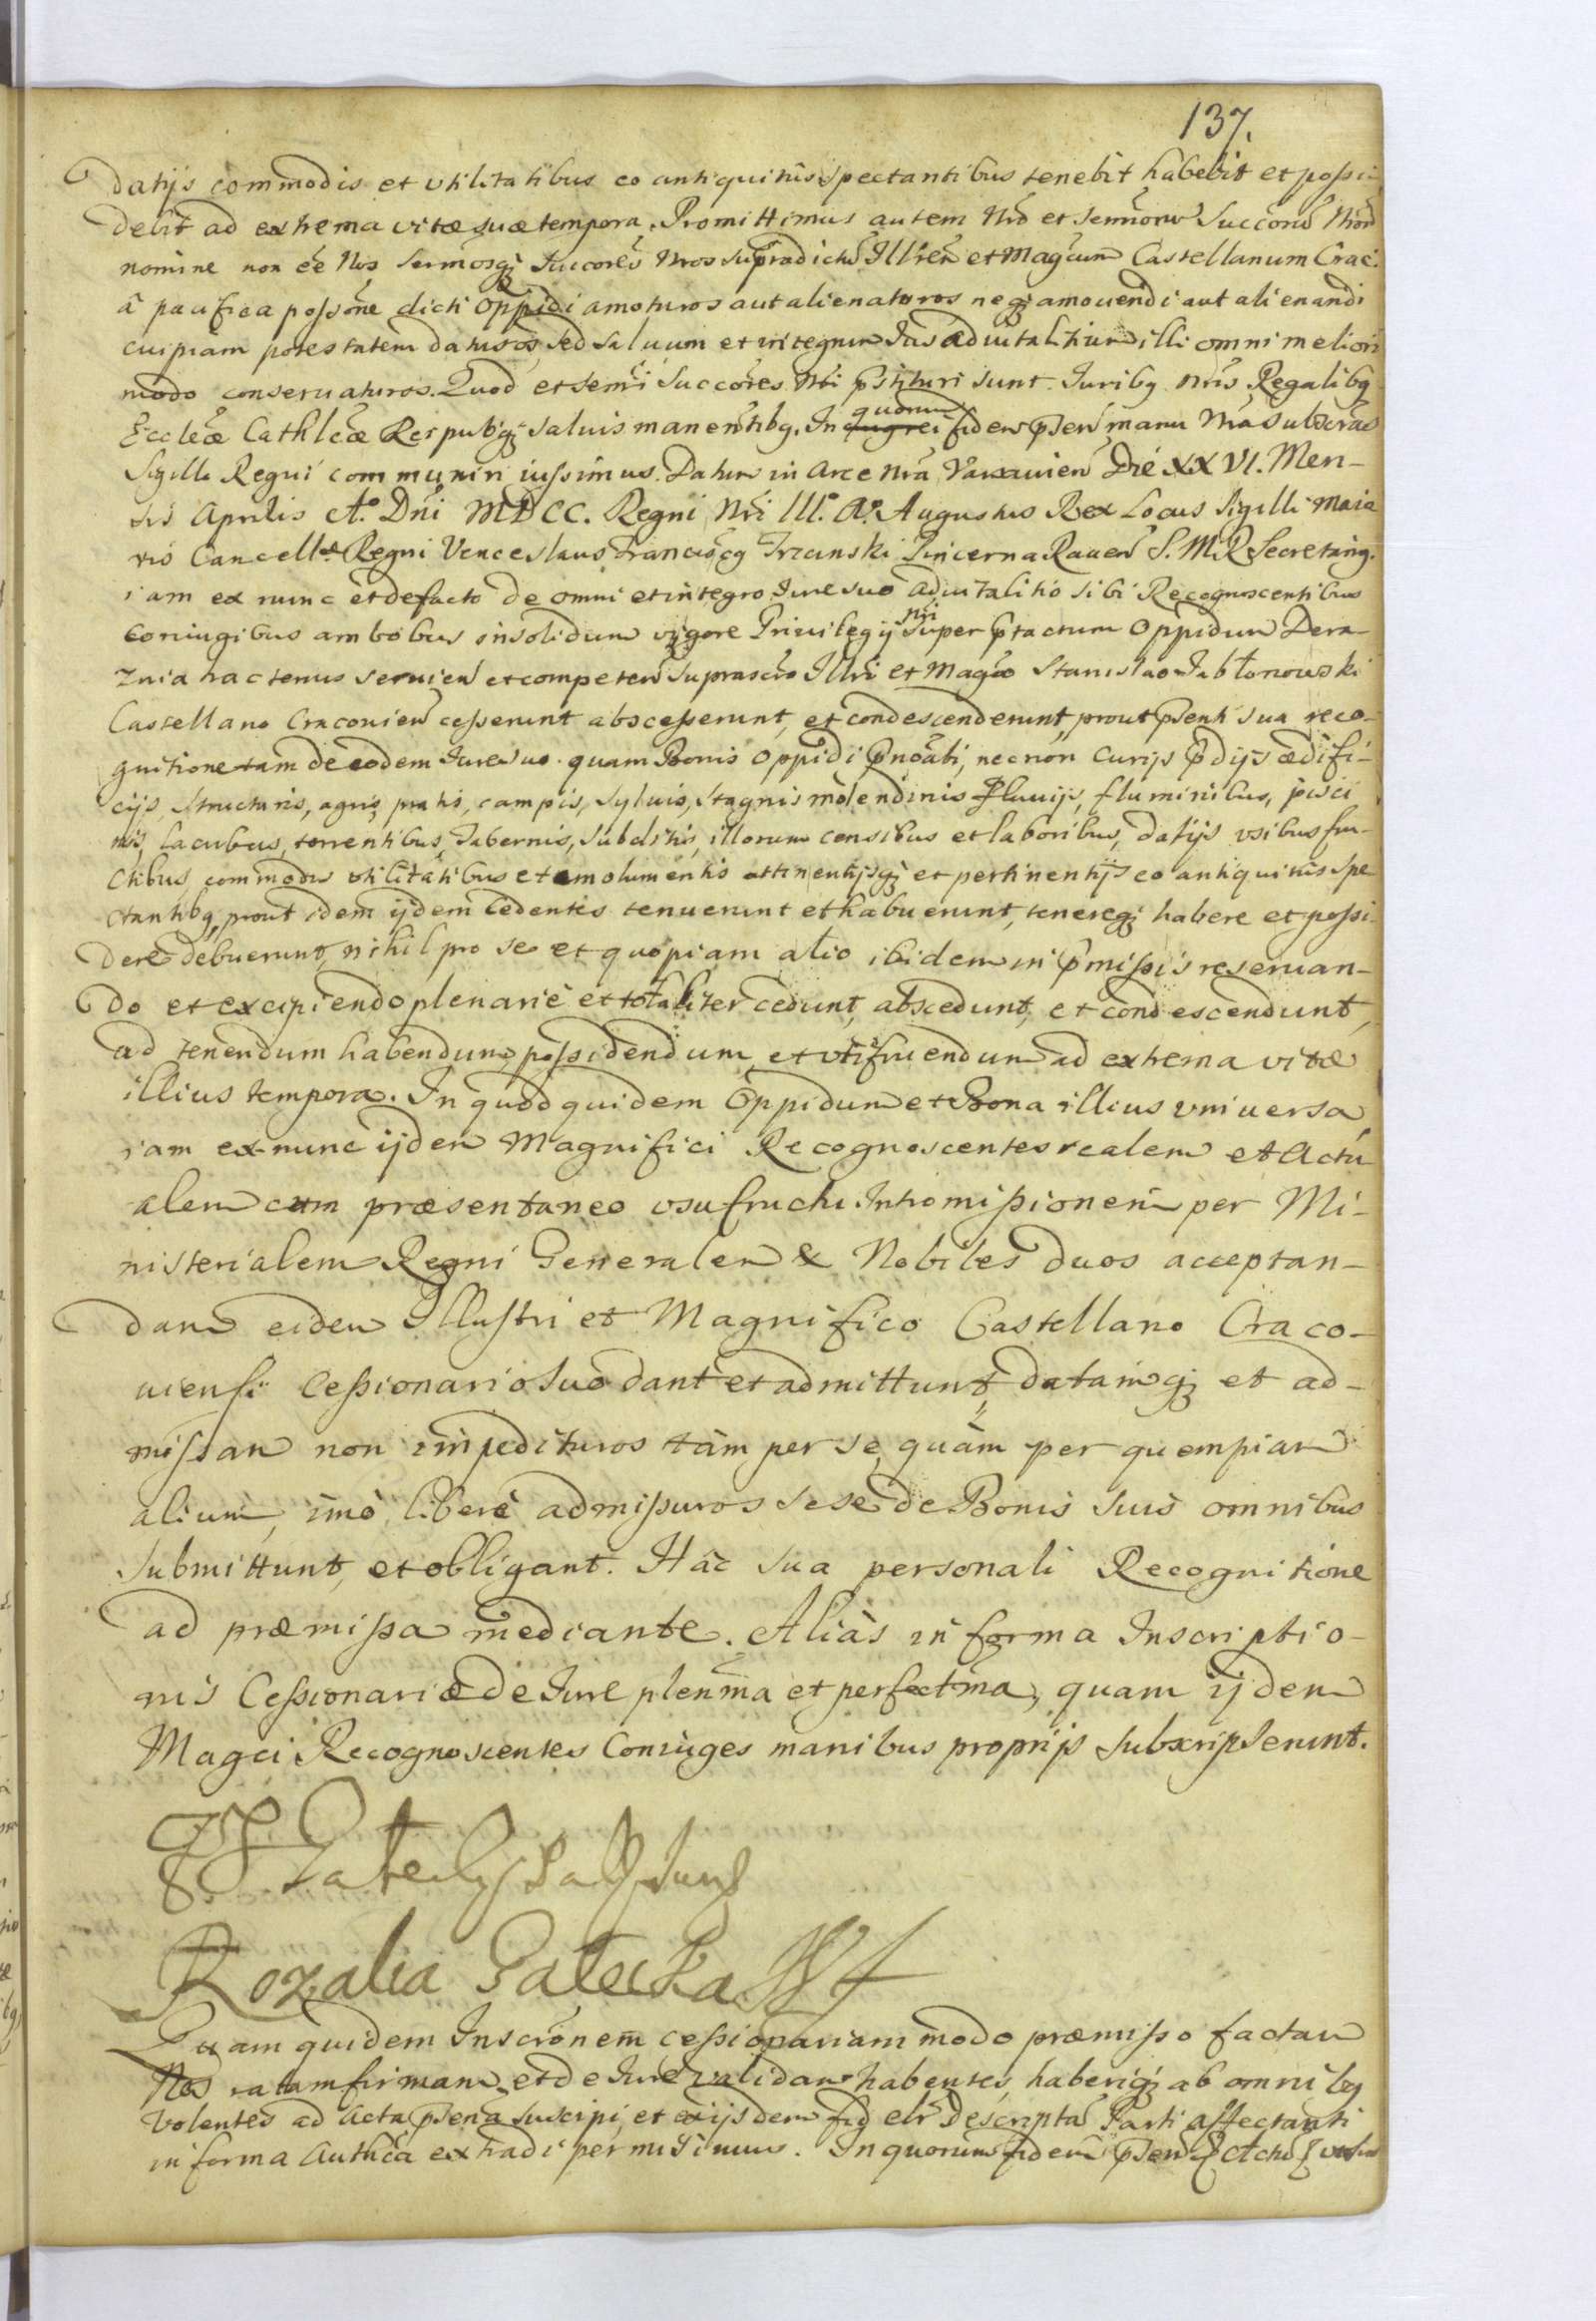 137.
datijs commodis et utilitatibus eo antiquitus spectantibus tenebit habebit et possi-
debit ad extrema vitæ suæ tempora. Promittimus autem Nrõ et Sermorũ Succorũ Nrorũ
nomine non ẽe Nos Sermosq; Succorẽs Nros supradictũ Illrem et Magcum Castellanum Crac.
â pacifica possone dicti Oppidi amoturos aut alienaturos neq; amovendi aut alienandi
cuipiam potestatem daturos, sed salvum et integrum Jus advitalitium illi omni meliori
modo conservaturos. Quod et Sermi Succores Nri pstituri sunt. Juribg nris Regalibg
Eccleæ Cathleæ Reipubq; salvis manentibg. In quorum fidem psen manu Nra subscras
Sigillo Regni communiri iussimus. Datum in Arce nra Varsavien Die XXVI. Men-
sis Aprilis Ao. Dni MDCC. Regni Nri III. Ao. Augustus Rex Locus Sigilli Maio
ris Cancellæ Regni Venceslaus Franciscg Trzcinski Pincerna Raven S. M. R. Secretarig.
iam ex nunc et de facto de omni et integro Jure suo advitalitio sibi Recognoscentibus
coniugibus ambobus insolidum vigore Privilegij nri super ptactum Oppidum Dera-
znia hactenus servien et competen suprascto Illri et Magco Stanislao Jabłonowski
Castellano Cracovien cesserunt abscesserunt, et condescenderunt, prout psenti sua reco-
gnitione tam de eodem Jure suo quam Bonis Oppidi pnoati, necnon Curijs pdijs ædifi-
cijs, structuris, agris, pratis, campis, sylvis, stagnis molendinis Fluvijs, fluminibus, pisci
nis, lacubus, torrentibus, Tabernis, subditis, illorum censibus et laboribus, datijs usibus fru-
ctibus, commodis utilitatibus et emolumentis attinentijsq; et pertinentijs eo antiquitus spe
ctantibg, prout idem ijdem Cedentes tenuerunt et habuerunt, tenereq; habere et possi-
dere debuerunt, nihil pro se et quopiam alio ibidem in pmissis reservan-
do et excipiendo plenarie et totaliter cedunt, abscedunt, et condescendunt,
ad tenendum habendum, possidendum, et utifruendum ad extrema vitæ
illius tempora. In quod quidem Oppidum et Bona illius universa
iam ex nunc ijdem Magnifici Recognoscentes realem et Actu
alem cum præsentaneo usufructu Intromissionem per Mi-
nisterialem Regni Generalem & Nobiles duos acceptan-
dam eidem Illustri et Magnifico Castellano Craco-
viensi Cessionario suo dant et admittunt, datamq; et ad-
missam non impedituros tàm per se, quàm per quempiam
alium, imò liberè admissuros sese de Bonis suis omnibus
submittunt, et obligant. Hâc sua personali Recognitione
ad præmissa mediante. Aliàs in forma Inscriptio-
nis Cessionariæ de Jure plenma et perfectma, quam ijdem
Magci Recognoscentes Coniuges manibus proprijs subscripserunt.
Rozalia Gałecka
Quam quidem Inscronem cessionariam modo præmisso factam
Nos ratam firmam, et de Jure validam habentes, haberiq; ab omnibg
volentes ad Acta psena suscipi, et ex ijsdem descripta Parti affectanti
in forma Authca extradi permisimus. In quorum fidem psen